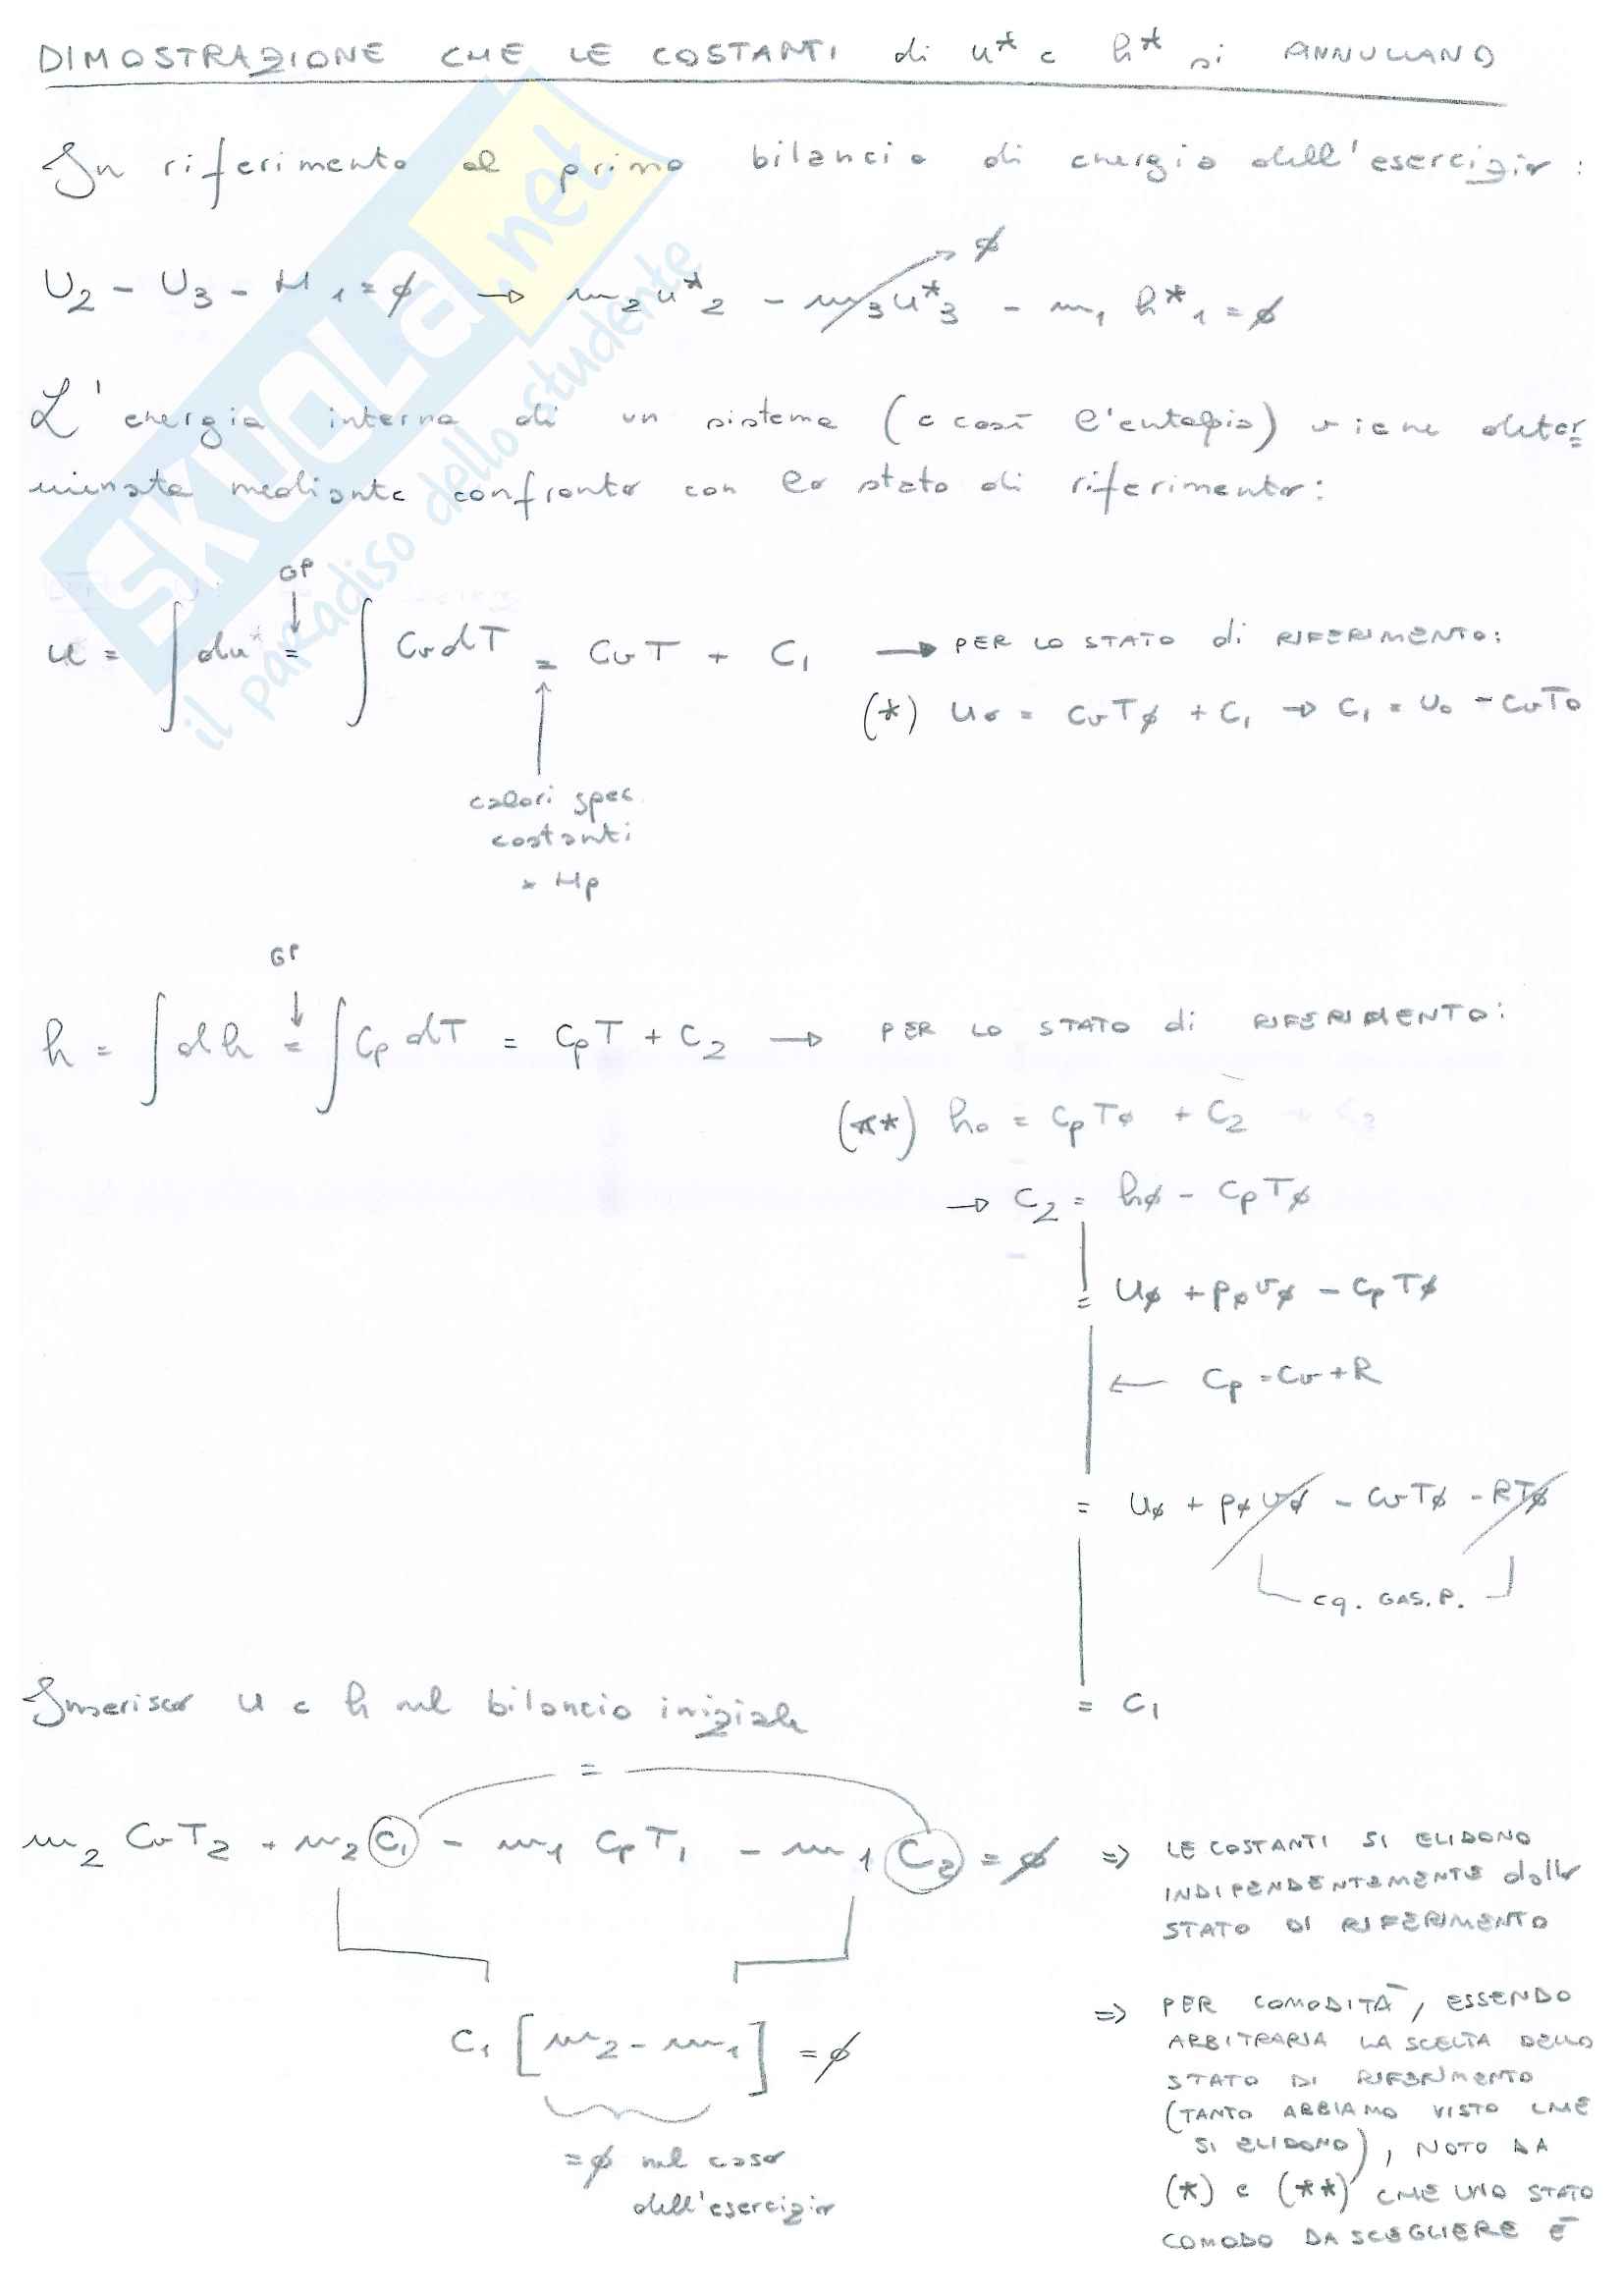 DIMOSTRAZIONE CHE LE COSTANTI di u* e h* si ANNULLANO
In riferimento al primo bilancio di energia dell'esercizio:
U2 - U3 - H1 = ∅ → m2 u*2 - m3 u*3 → ∅ - m1 h*1 = ∅
L'energia interna di un sistema (e così l'entalpia) viene deter=
minata mediante confronto con lo stato di riferimento:
GP
u = ∫ du* = ∫ Cv dT = Cv T + C1 → PER LO STATO di RIFERIMENTO:
(*) u0 = Cv T∅ + C1 → C1 = u0 - Cv T0
calori spec.
costanti
x Hp
GP
h = ∫ dh = ∫ Cp dT = Cp T + C2 → PER LO STATO di RIFERIMENTO:
(**) h0 = Cp T∅ + C2
→ C2 = h∅ - Cp T∅
= u∅ + p∅ v∅ - Cp T∅
← Cp = Cv + R
= u∅ + p∅ v∅ - Cv T∅ - R T∅
eq. GAS. P.
= C1
Inserisco u e h nel bilancio iniziale
=
m2 Cv T2 + m2 C1 - m1 Cp T1 - m1 C2 = ∅ ⇒ LE COSTANTI SI ELIDONO
INDIPENDENTEMENTE dallo
STATO DI RIFERIMENTO
C1 [m2 - m1] = ∅
= ∅ nel caso
dell'esercizio
⇒ PER COMODITÀ, ESSENDO
ARBITRARIA LA SCELTA DELLO
STATO DI RIFERIMENTO
(TANTO ABBIAMO VISTO CHE
SI ELIDONO), NOTO DA
(*) e (**) CHE UNO STATO
COMODO DA SCEGLIERE È
SKUOLA.net
il paradiso dello studente